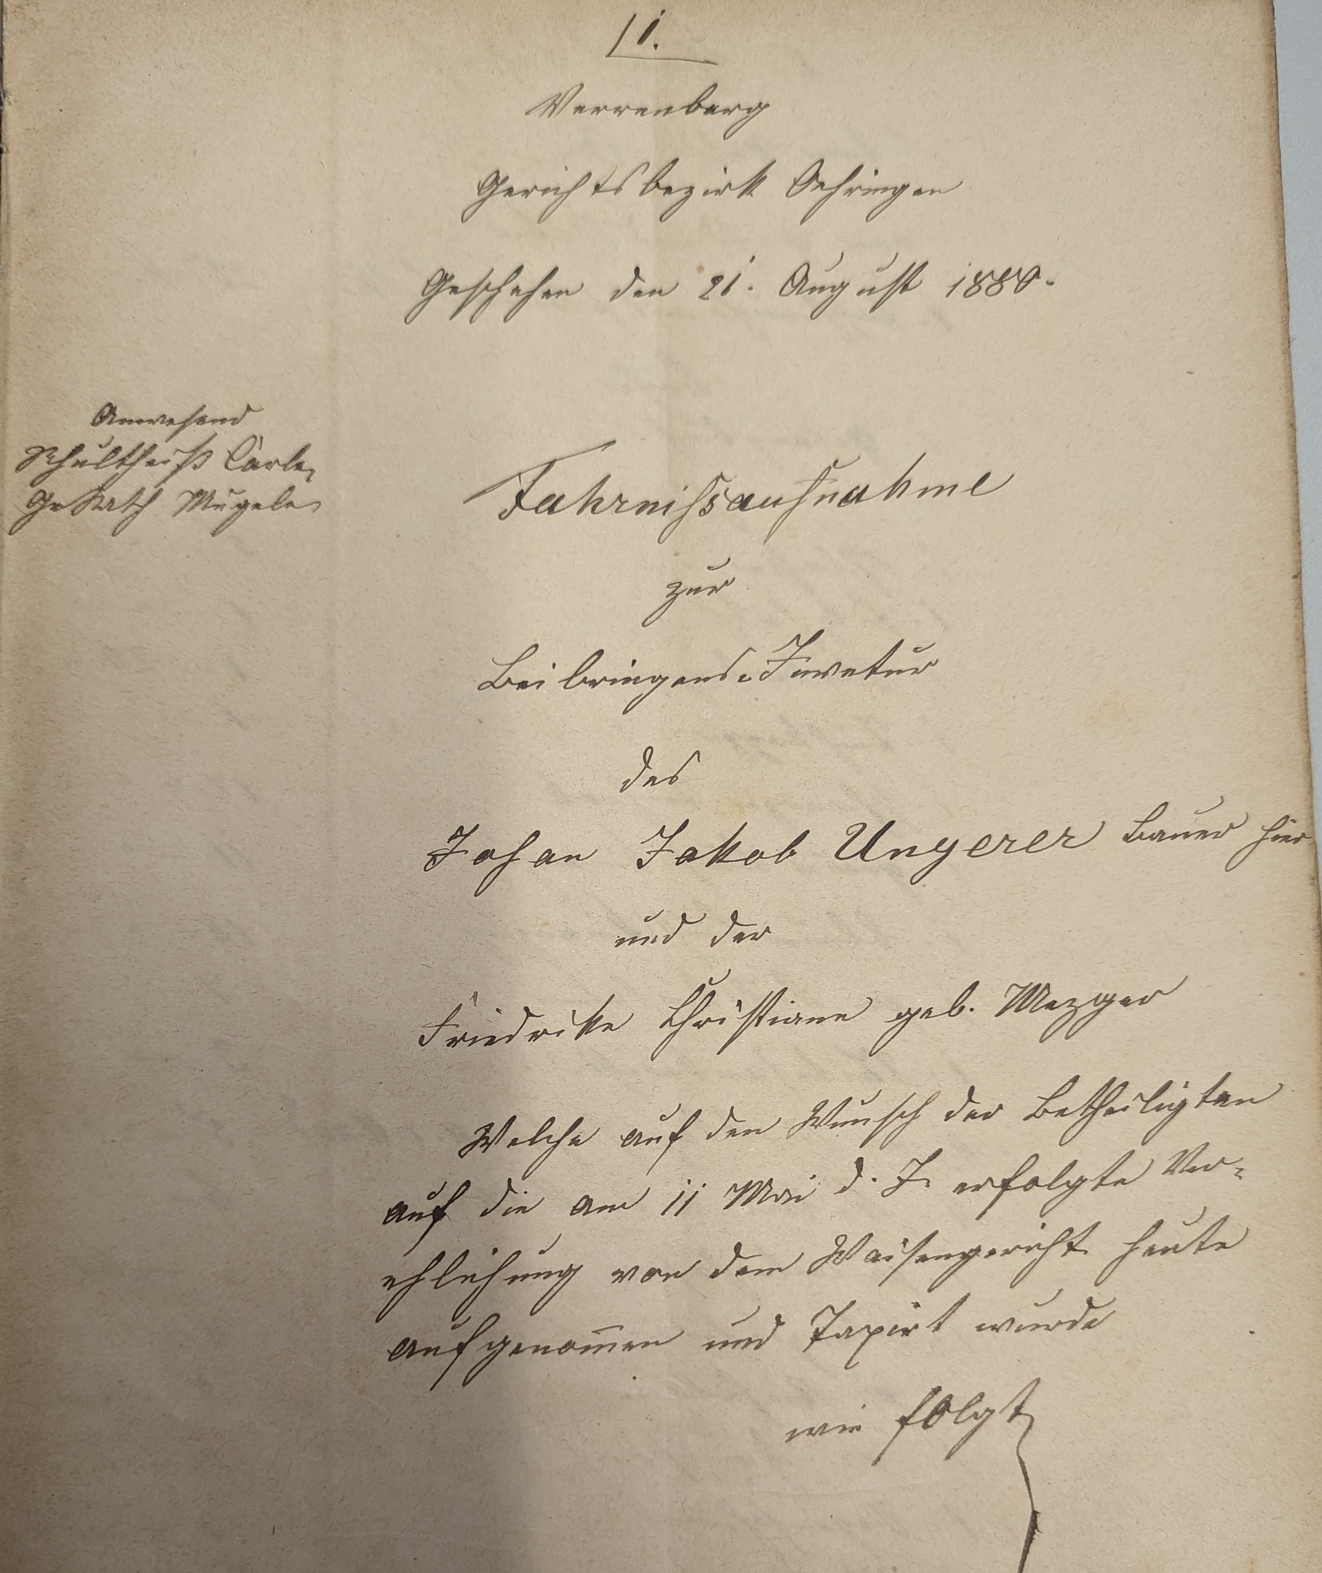 1.
Verrenberg
Gerichtsbezirk Oehringen
Geschehen den 21. August 1880.
Anwesend
Schultheiß Carle,
Ge Rath Mugele
Fahrnissaufnahme
zur
Beibringens-Invetur
des
Johan Jakob Ungerer Bauer hier
und der
Friedrike Christiane geb. Mezger
Welche auf den Wunsch der Betheiligten
auf die am 11 Mai d. J. erfolgte Ver-
ehlichung von dem Waisengericht heute
aufgenom̅en und Taxirt wurde
wie folgt